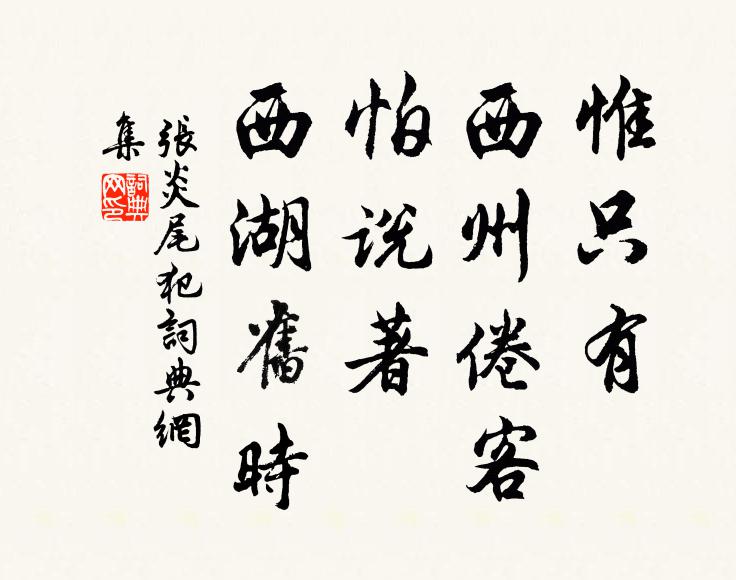 惟只有
西州倦客
怕说著
西湖舊時
張炎尾犯詞典網
集
詞典
网印